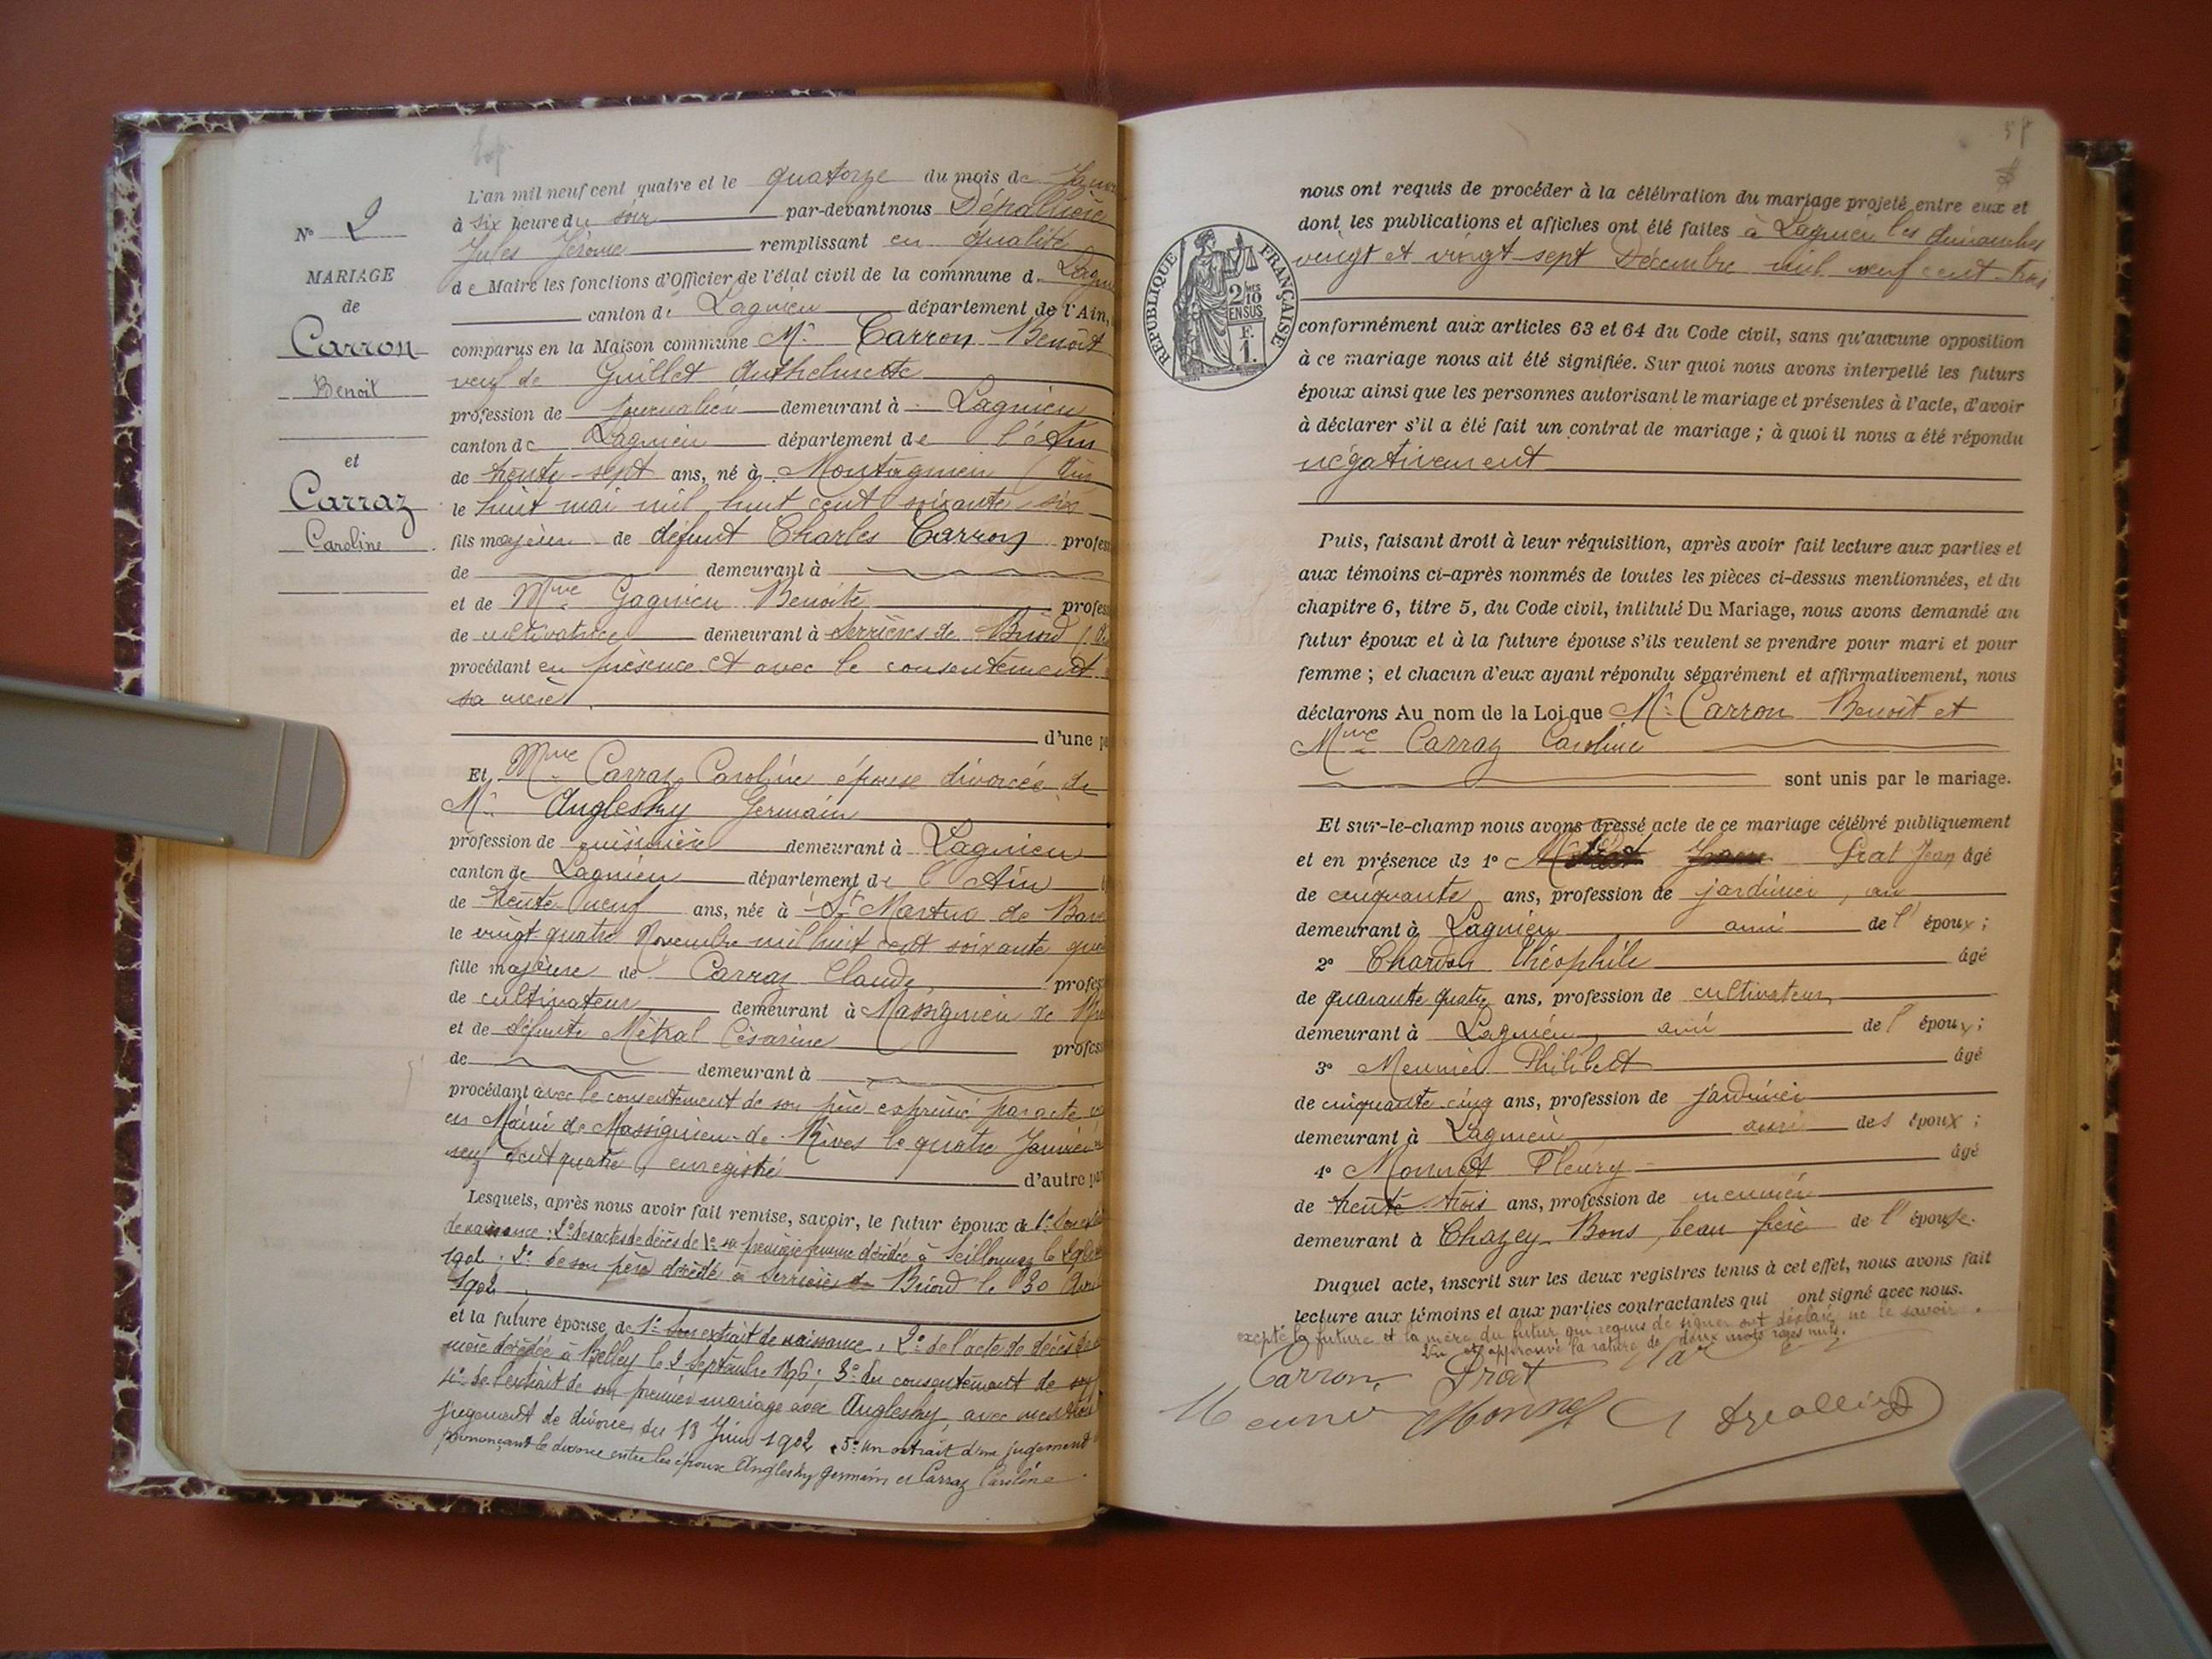 L'an mil neuf cent quatre et le quatorze du mois de Janv
à six heure du soir par-devant nous Dépallière
Jules Jérôme remplissant en qualité
N° 2
de Maire les fonctions d'Officier de l'état civil de la commune d. Lagn
MARIAGE
canton de Lagnieu département de l'Ain,
de
comparus en la Maison commune Mr. Carron Benoît
Carron
veuf de Guillet Anthelmette
Benoit
profession de journalier demeurant à Lagnieu
canton de Lagnieu département de l'Ain
et
de trente-sept ans, né à Montagnieu (Ain
Carraz
le huit mai mil huit cent soixante six
Caroline
fils majeur de défunt Charles Carron profess
de demeurant à
et de Mme Gagnieu Benoite profess
de cultivatrice demeurant à Serrières de Briord (Ai
procédant en présence et avec le consentement
sa mère
d'une pa
Et, Mme Carraz Caroline épouse divorcée de
Mr. Anglesky Germain
profession de cuisinière demeurant à Lagnieu
canton de Lagnieu département de l'Ain
de trente-neuf ans, née à St Martin de Bav
le vingt-quatre Novembre mil huit cent soixante qua
fille majeure de Carraz Claude profess
de cultivateur demeurant à Massignieu de Ri
et de défunte Métral Césarine profess
de demeurant à
procédant avec le consentement de son père exprimé par acte
en Mairie de Massignieu-de-Rives le quatre Janvier
neuf cent quatre, enregistré d'autre par
Lesquels, après nous avoir fait remise, savoir, le futur époux de 1° Son extr
de naissance; 2° des actes de décès de 1° sa première femme décédée à Seillonnaz le
1902; 2° de son père décédé à Serrières de Briord le 30 Avri
1902
et la future épouse de 1° Son extrait de naissance, 2° de l'acte de décès de
mère décédée à Belley le 2 Septembre 1896; 3° du consentement de son
4° de l'extrait de son premier mariage avec Anglesky, avec mention
jugement de divorce du 18 Juin 1902, 5° un extrait d'un jugement
prononçant le divorce entre les époux Anglesky Germain et Carraz Caroline.
nous ont requis de procéder à la célébration du mariage projeté entre eux et
dont les publications et affiches ont été faites à Lagnieu les dimanches
vingt et vingt-sept Décembre mil neuf cent trois
RÉPUBLIQUE FRANÇAISE
2/10 EN SUS
F. 1.
conformément aux articles 63 et 64 du Code civil, sans qu'aucune opposition
à ce mariage nous ait été signifiée. Sur quoi nous avons interpellé les futurs
époux ainsi que les personnes autorisant le mariage et présentes à l'acte, d'avoir
à déclarer s'il a été fait un contrat de mariage; à quoi il nous a été répondu
négativement
Puis, faisant droit à leur réquisition, après avoir fait lecture aux parties et
aux témoins ci-après nommés de toutes les pièces ci-dessus mentionnées, et du
chapitre 6, titre 5, du Code civil, intitulé Du Mariage, nous avons demandé au
futur époux et à la future épouse s'ils veulent se prendre pour mari et pour
femme; et chacun d'eux ayant répondu séparément et affirmativement, nous
déclarons Au nom de la Loi que Mr. Carron Benoît et
Mme Carraz Caroline
sont unis par le mariage.
Et sur-le-champ nous avons dressé acte de ce mariage célébré publiquement
et en présence de 1° Prat Jean âgé
de cinquante ans, profession de jardinier, an
demeurant à Lagnieu ami de l'époux;
2° Chardon Théophile âgé
de quarante quatre ans, profession de cultivateur,
demeurant à Lagnieu, ami de l'époux;
3° Meunier Philibert âgé
de cinquante-cinq ans, profession de jardinier
demeurant à Lagnieu ami des époux;
4° Monnet Fleury âgé
de trente-trois ans, profession de meunier
demeurant à Chazey-Bons, beau-frère de l'épouse.
Duquel acte, inscrit sur les deux registres tenus à cet effet, nous avons fait
lecture aux témoins et aux parties contractantes qui ont signé avec nous.
excepté la future et la mère du futur qui requis de signer ont déclaré ne le savoir.
Vu et approuvé la rature de deux mots rayés nuls.
Carron Prat
Meunier Monnet